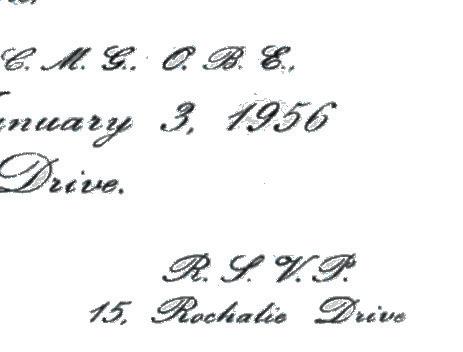 C. M. G., O. B. E.,
anuary 3, 1956
Drive.
R. S. V. P.
15, Rochalie Drive